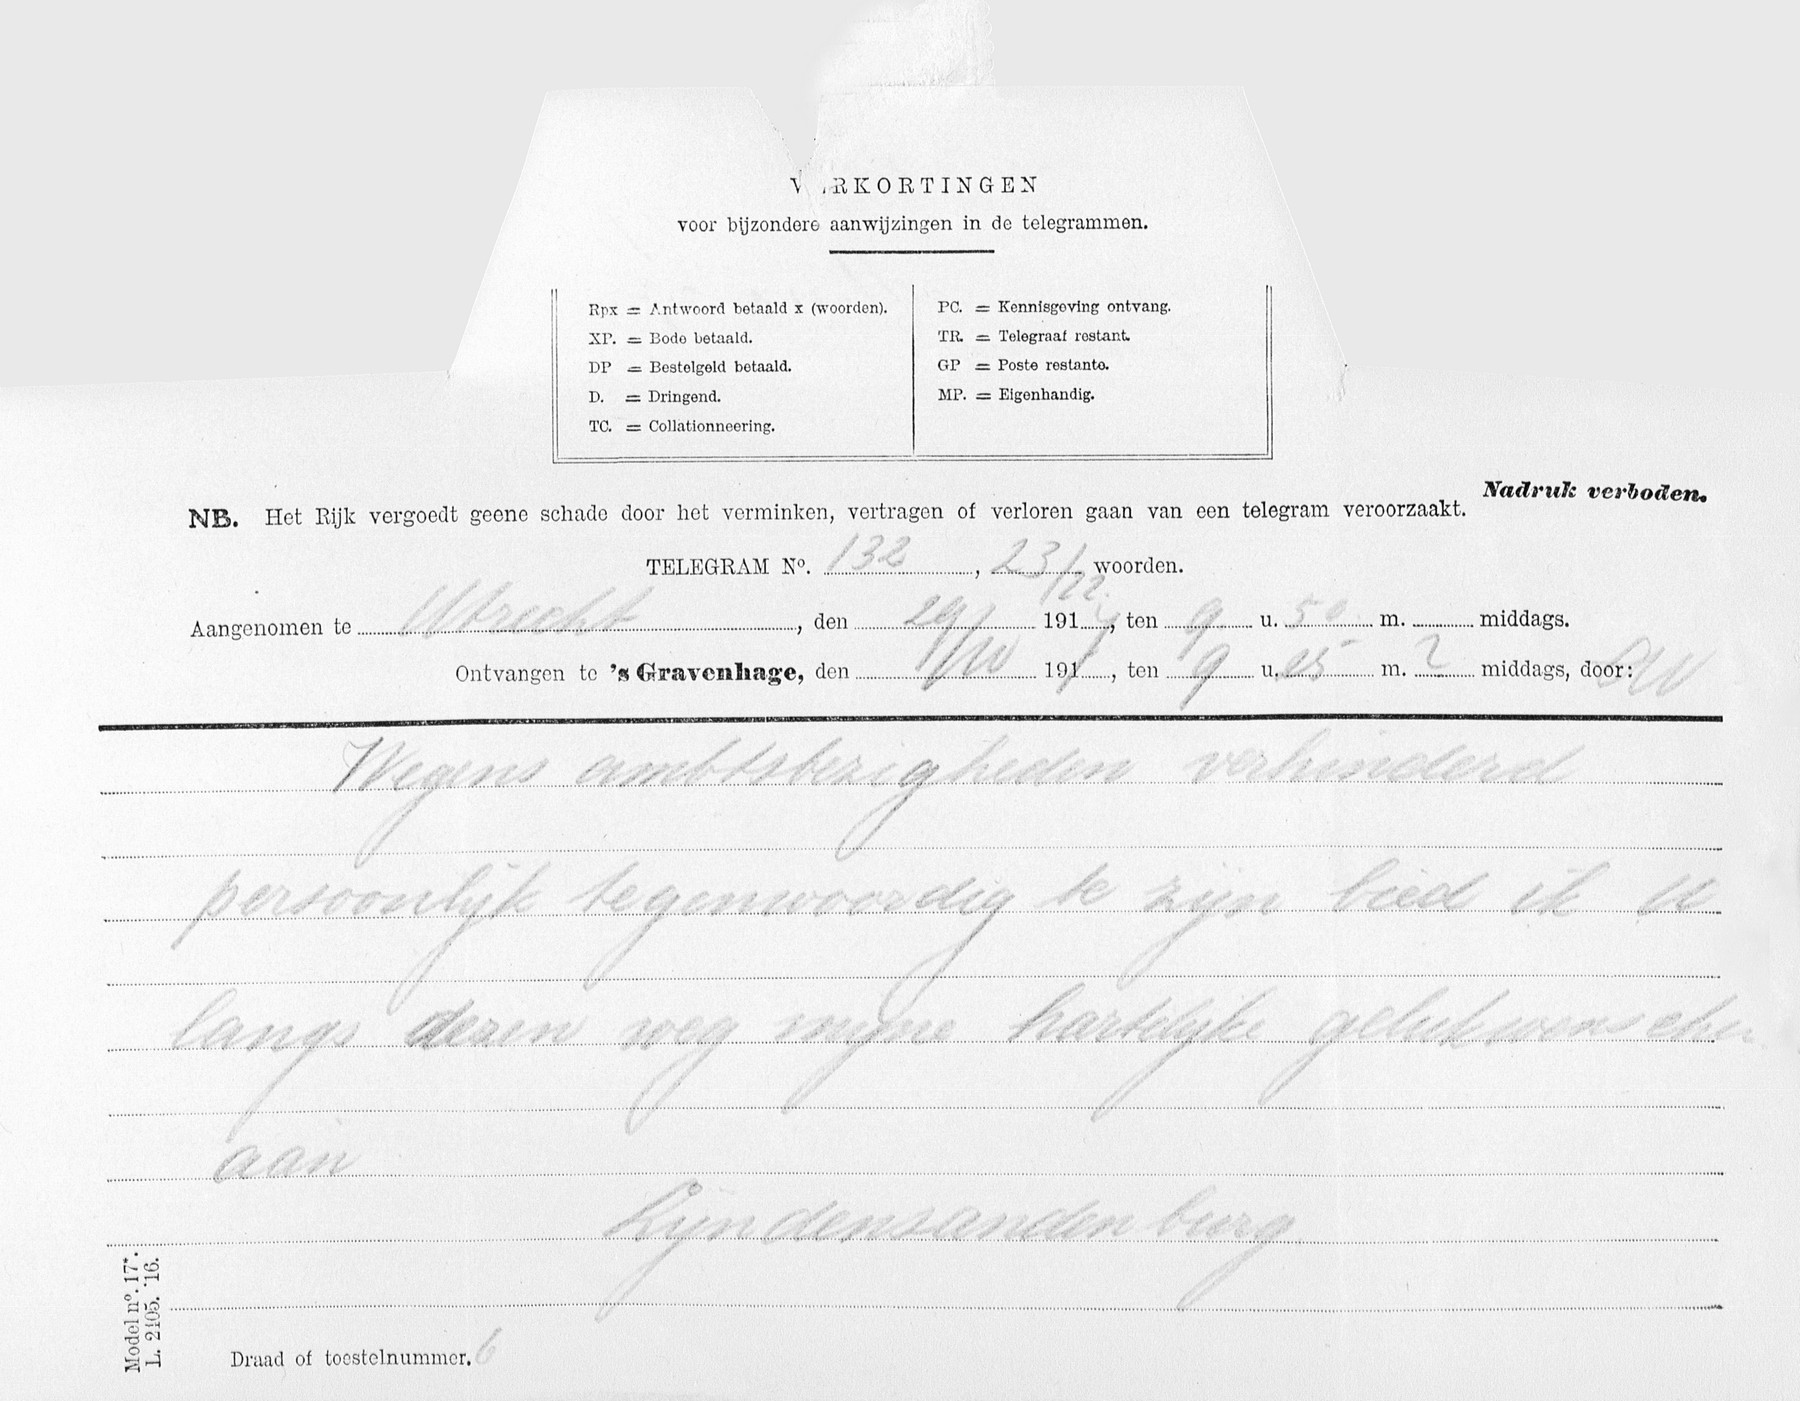 VERKORTINGEN
voor bijzondere aanwijzingen in de telegrammen.
Rpx = Antwoord betaald x (woorden).
XP. = Bode betaald.
DP = Bestelgeld betaald.
D. = Dringend.
TC. = Collationneering.
PC. = Kennisgeving ontvang.
TR. = Telegraaf restant.
GP = Poste restante.
MP. = Eigenhandig.
Nadruk verboden.
NB. Het Rijk vergoedt geene schade door het verminken, vertragen of verloren gaan van een telegram veroorzaakt.
TELEGRAM No. 132, 23/22 woorden.
Aangenomen te Utrecht, den 29/10 191 , ten 9 u. 50 m. middags.
Ontvangen te 's Gravenhage, den 191 , ten 9 u. m. middags, door:
Wegens ambtsbezigheden verhinderd
persoonlijk tegenwoordig te zijn bied ik u
langs dezen weg mijne hartelijke gelukwenschen
aan
Lijndensandenburg
Model no. 17*.
L. 2105. '16.
Draad of toestelnummer. 6